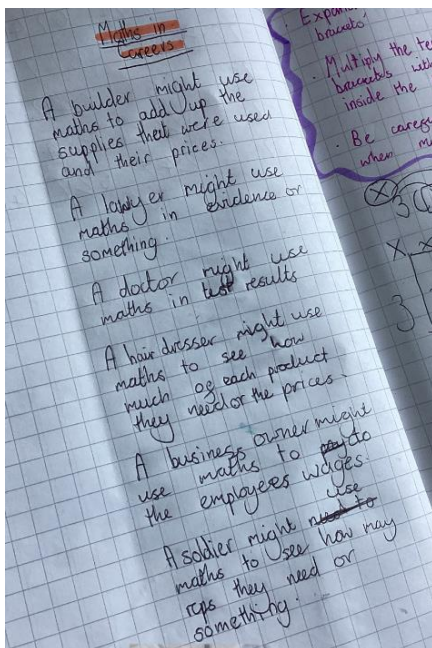 Maths in
careers
A builder might use
maths to add up the
supplies that were used
and their prices.
A lawyer might use
maths in evidence or
something.
A doctor might use
maths in test results
A hair dresser might use
maths to see how
much of each product
they need or the prices.
A business owner might
use maths to do
the employees wages.
A soldier might use
maths to see how may
rops they need or
something.
Expand
brackets
Multiply the te
brackets with
inside the
Be carefu
when m
3
3